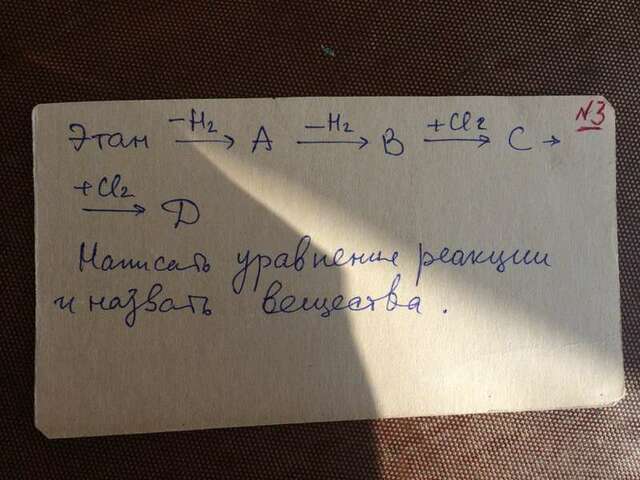 №3
Этан −H₂→ A −H₂→ B +Cl₂→ C →
+Cl₂→ D
Написать уравнение реакции
и назвать вещества.